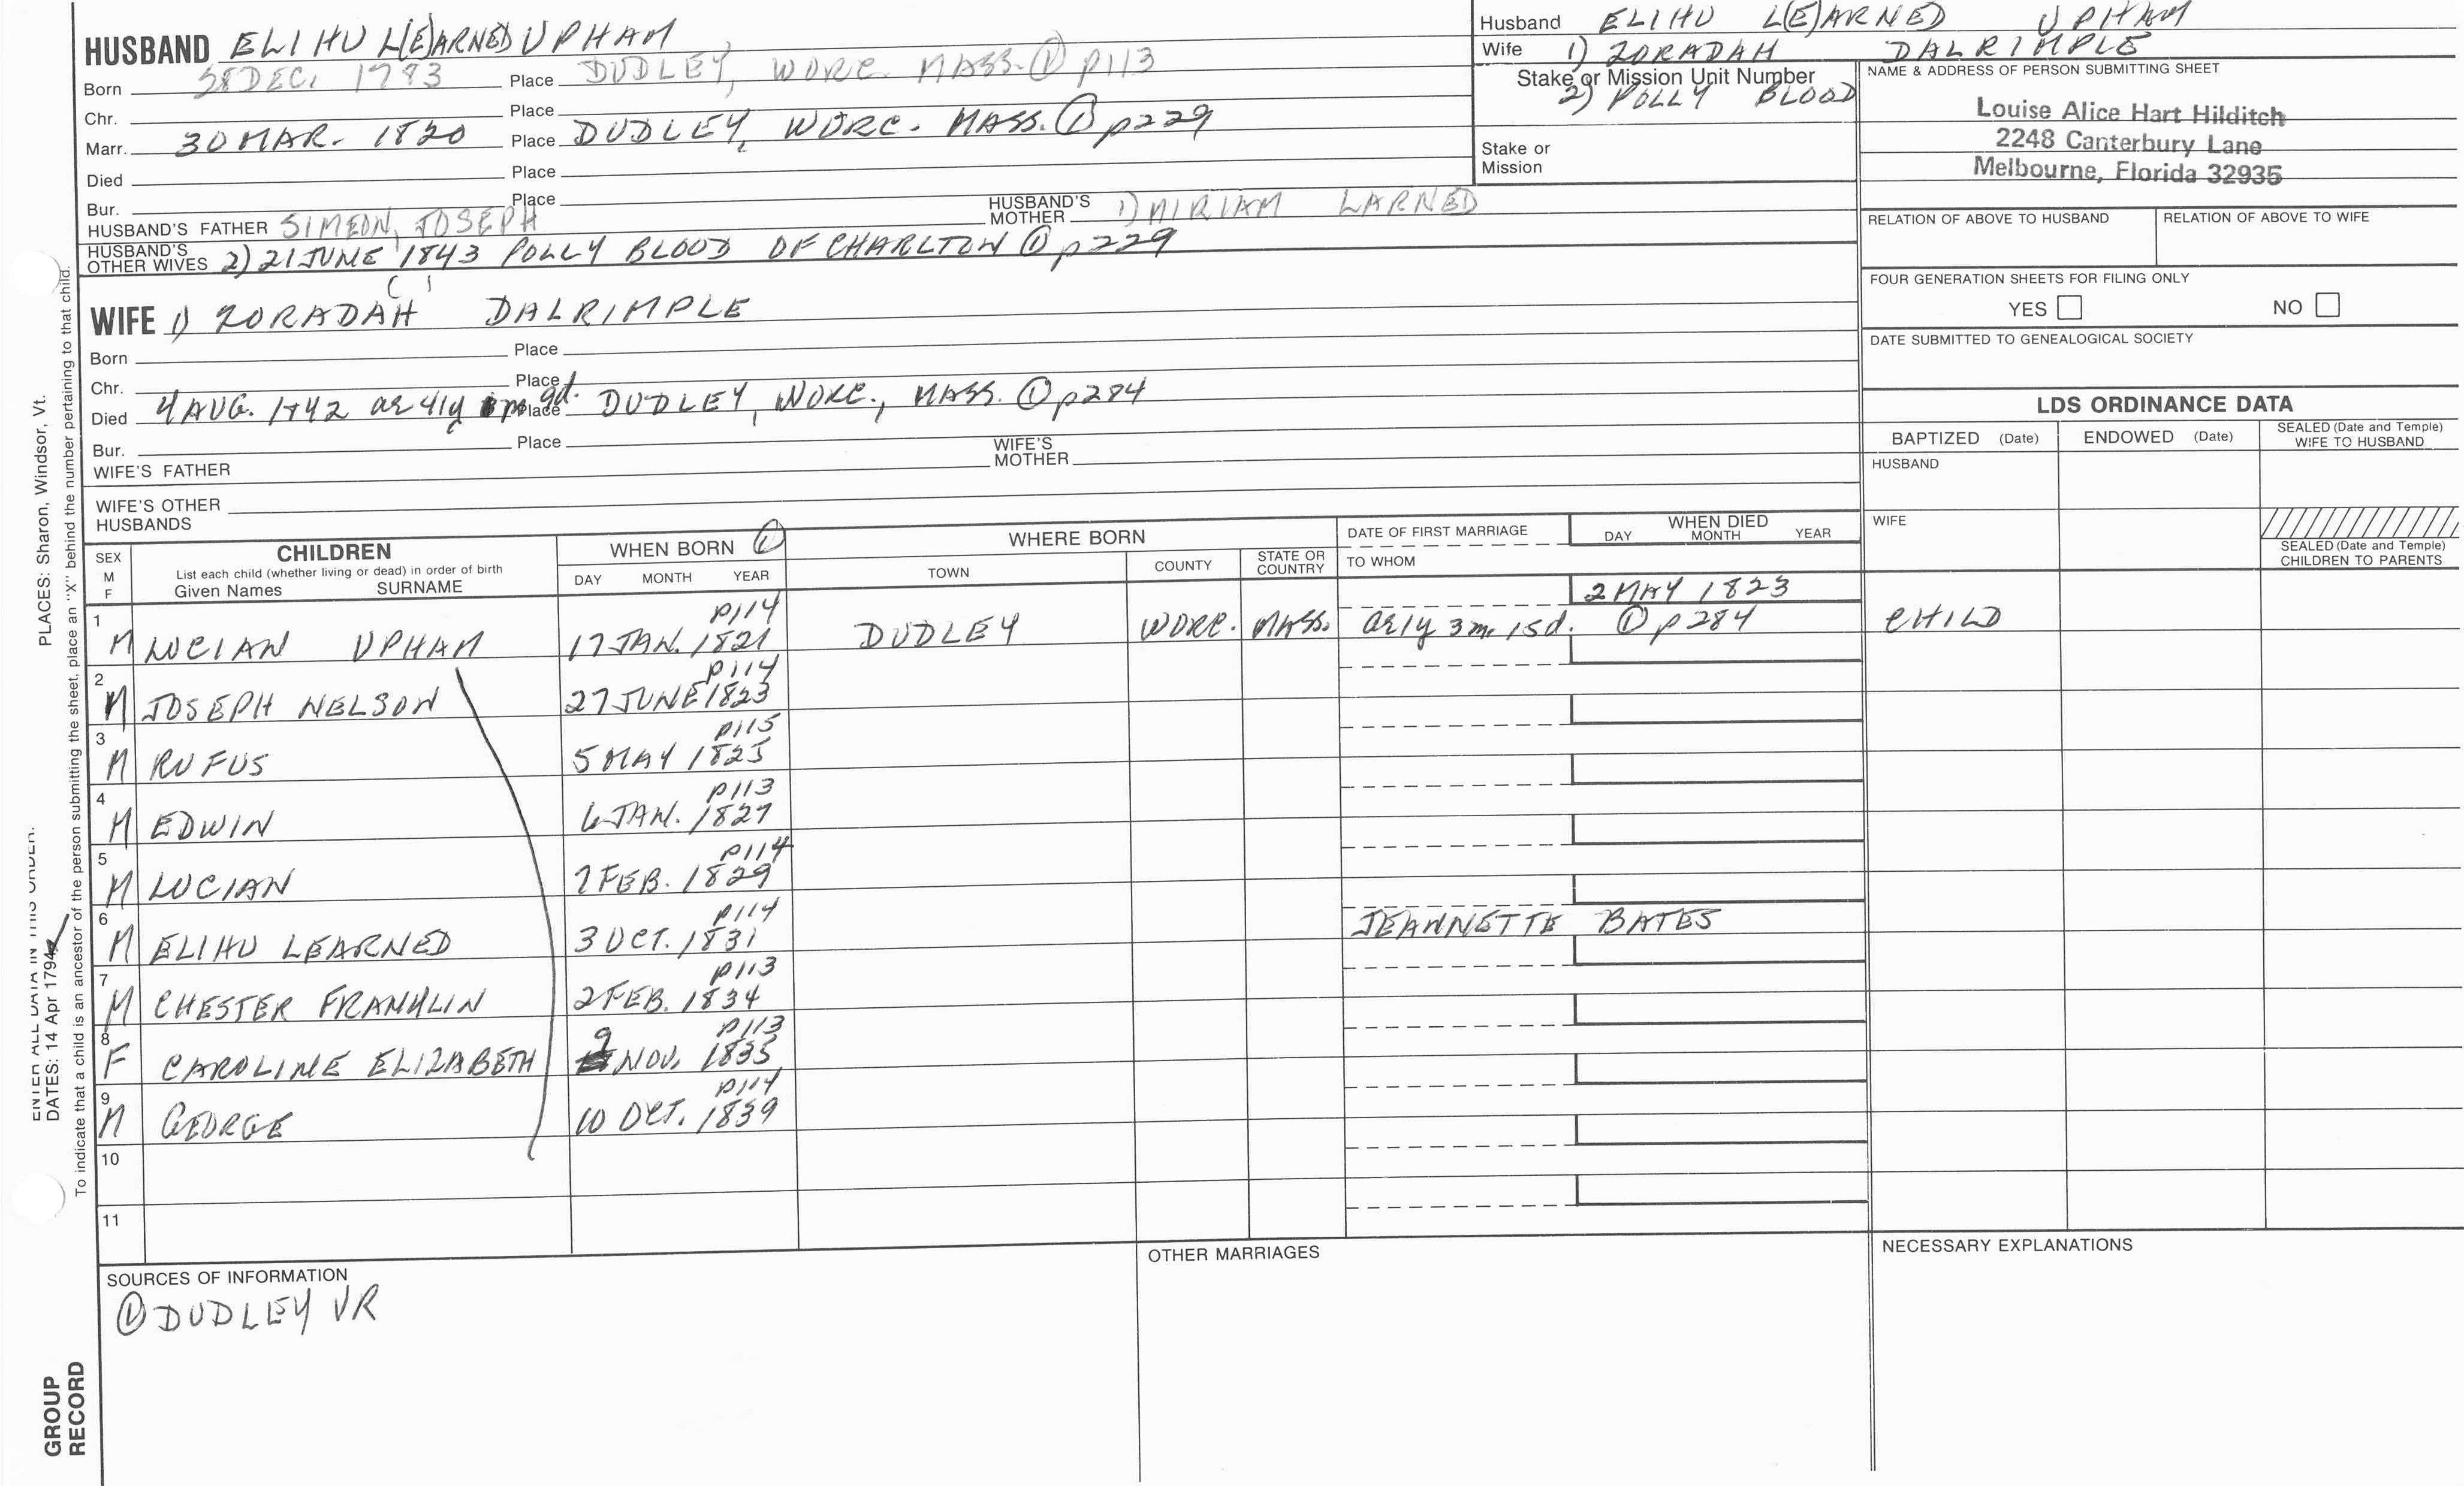 HUSBAND ELIHU L(E)ARNED UPHAM
Born 28 DEC. 1793 Place DUDLEY, WORC. MASS. ① p113
Chr. Place
Marr. 30 MAR. 1820 Place DUDLEY, WORC. MASS. ① p229
Died Place
Bur. Place
HUSBAND'S FATHER SIMEON, JOSEPH HUSBAND'S MOTHER 1) MIRIAM LARNED
HUSBAND'S OTHER WIVES 2) 21 JUNE 1843 POLLY BLOOD OF CHARLTON ① p229
WIFE 1) ZORADAH DALRIMPLE
Born Place
Chr. Place
Died 4 AUG. 1842 ae 41y 9d. Place DUDLEY, WORC., MASS. ① p284
Bur. Place
WIFE'S FATHER WIFE'S MOTHER
WIFE'S OTHER HUSBANDS
Husband ELIHU L(E)ARNED UPHAM
Wife 1) ZORADAH DALRIMPLE
Stake or Mission Unit Number
2) POLLY BLOOD
Stake or Mission
NAME & ADDRESS OF PERSON SUBMITTING SHEET
Louise Alice Hart Hilditch
2248 Canterbury Lane
Melbourne, Florida 32935
RELATION OF ABOVE TO HUSBAND RELATION OF ABOVE TO WIFE
FOUR GENERATION SHEETS FOR FILING ONLY
YES NO
DATE SUBMITTED TO GENEALOGICAL SOCIETY
LDS ORDINANCE DATA
BAPTIZED (Date) ENDOWED (Date) SEALED (Date and Temple) WIFE TO HUSBAND
HUSBAND
WIFE
SEALED (Date and Temple) CHILDREN TO PARENTS
SEX M F
CHILDREN
List each child (whether living or dead) in order of birth
Given Names SURNAME
WHEN BORN ①
DAY MONTH YEAR
WHERE BORN
TOWN COUNTY STATE OR COUNTRY
DATE OF FIRST MARRIAGE
TO WHOM
WHEN DIED
DAY MONTH YEAR
p114 2 MAY 1823
1 M LUCIAN UPHAM 17 JAN. 1821 DUDLEY WORC. MASS. ae 1y 3m 15d. ① p284 CHILD
p114
2 M JOSEPH NELSON 27 JUNE 1823
p115
3 M RUFUS 5 MAY 1825
p113
4 M EDWIN 6 JAN. 1827
p114
5 M LUCIAN 7 FEB. 1829
p114 JEANNETTE BATES
6 M ELIHU LEARNED 3 OCT. 1831
p113
7 M CHESTER FRANKLIN 2 FEB. 1834
p113
8 F CAROLINE ELIZABETH 9 NOV. 1835
p114
9 M GEORGE 10 OCT. 1839
10
11
SOURCES OF INFORMATION
① DUDLEY VR
OTHER MARRIAGES
NECESSARY EXPLANATIONS
ENTER ALL DATA IN THIS ORDER:
DATES: 14 Apr 1794 PLACES: Sharon, Windsor, Vt.
To indicate that a child is an ancestor of the person submitting the sheet, place an "X" behind the number pertaining to that child.
GROUP
RECORD